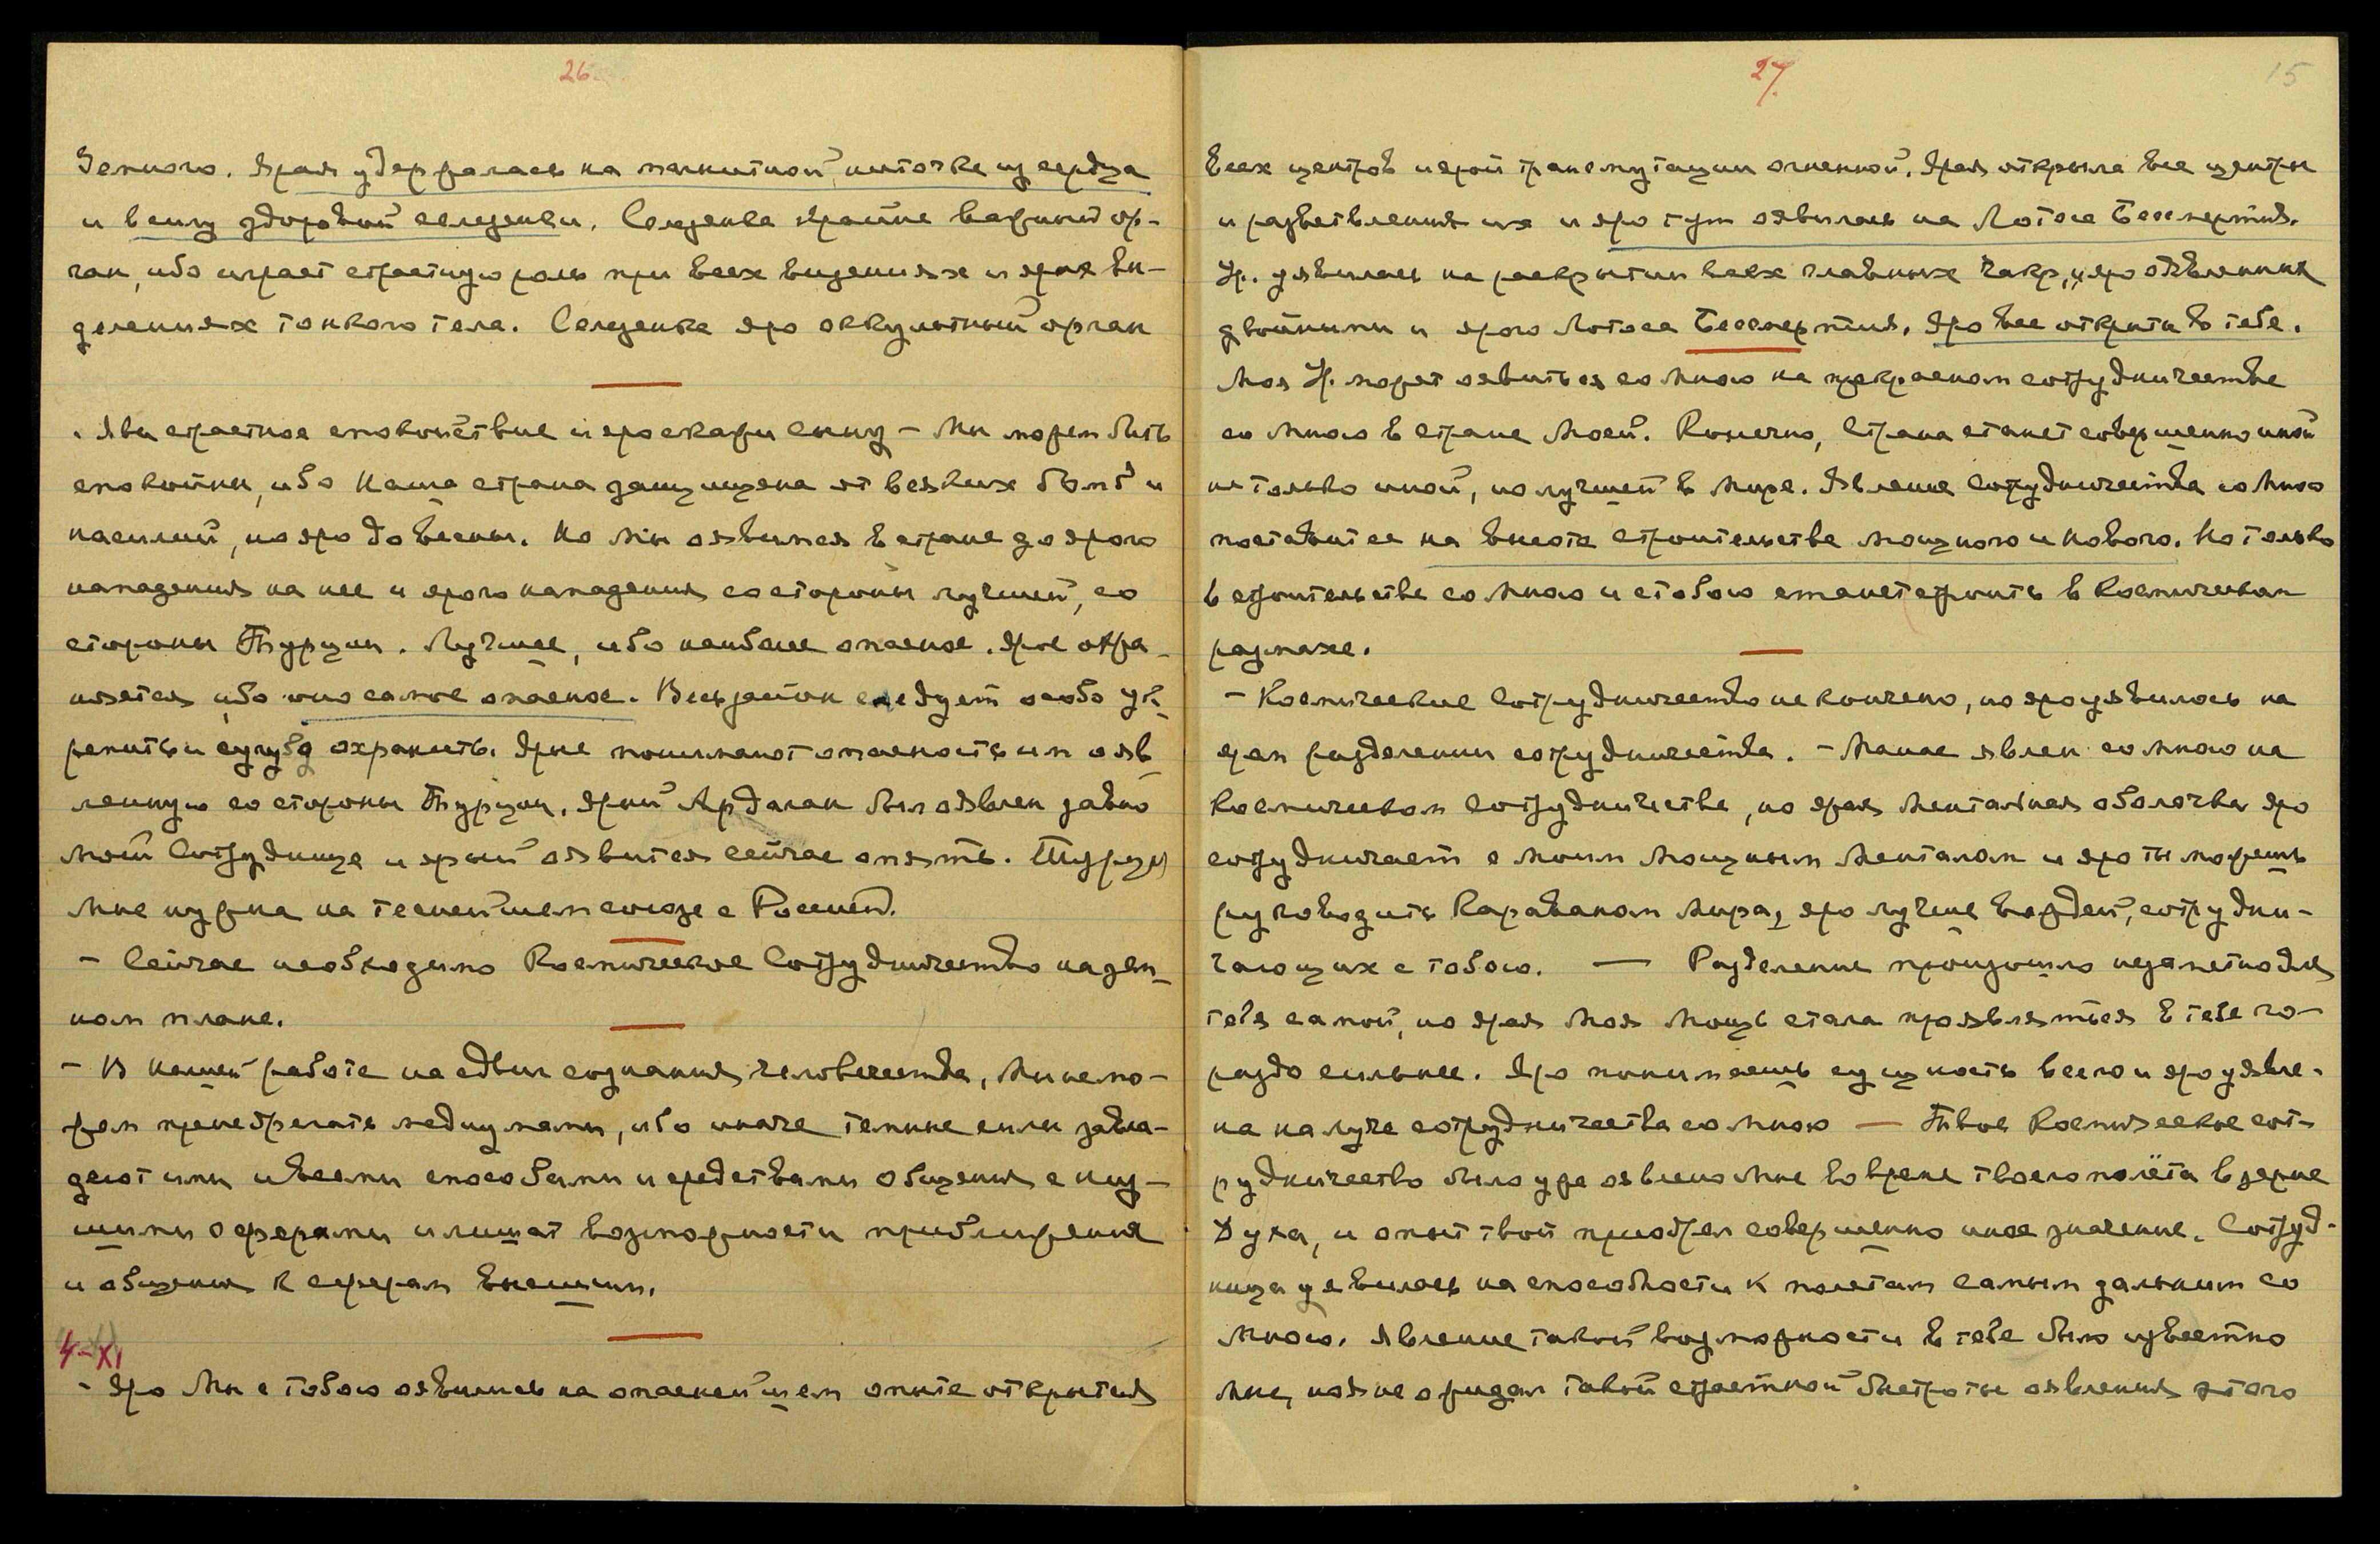 26.
Земного. Ярая удержалась на магнитной ниточке из сердца
и в силу здоровой селезенки. Селезенка крайне важный ор-
ган, ибо играет страстную роль при всех видениях и ярых вы-
делениях тонкого тела. Селезенка яро оккультный орган
. Яви страстное спокойствие и яро скажи сыну – Мы можем быть
спокойны, ибо Наша страна защищена от всяких бомб и
насилий, но яро до весны. Но Мы оявимся в стране до ярого
нападения на нее и ярого нападения со стороны лучшей, со
стороны Турции. Лучшее, ибо наиболее опасное. Ярое охра-
няется, ибо оно самое опасное. Весь район следует особо ук-
репить и сугубо охранить. Ярые понимают опасность им ояв-
ленную со стороны Турции. Ярый Ардаган был оявлен давно
моей Сотруднице и ярый оявится сейчас опять. Турция
Мне нужна на теснейшем союзе с Россией.
– Сейчас необходимо Космическое Сотрудничество на зем-
ном плане.
– В нашей работе на сдвиг сознания человечества, Мы не мо-
жем пренебрегать медиумами, ибо иначе темные силы завла-
деют ими и всеми способами и средствами общения с низ-
шими сферами и лишат возможности приближения
и общения к сферам высшим.
4-XI
– Яро Мы с тобою оявились на опаснейшем опыте открытия
27.
15
всех центров и ярой трансмутации огненной. Ярая открыла все центры
и разветвления их и яро тут оявилась на Лотосе Бессмертия.
Ур. уявилась на раскрытии всех главных чакр, и яро оявленных
двойными и ярого Лотоса Бессмертия. Яро все открыты в тебе.
Моя Ур. может оявиться со Мною на прекрасном сотрудничестве
со Мною в стране Моей. Конечно, Страна станет совершенно иной
не только иной, но лучшей в Мире. Явление Сотрудничества со Мною
поставит ее на высоте строительства мощного и нового. Но только
в строительстве со Мною и с тобою станет строить в Космическом
размахе.
– Космическое Сотрудничество не кончено, но яро уявилось на
ярем разделении сотрудничества. – Манас явлен со Мною на
Космическом Сотрудничестве, но ярая Ментальная оболочка яро
сотрудничает с моим Мощным Менталом и яро ты можешь
руководить Караваном Мира, яро лучше вождей, сотрудни-
чающих с тобою. — Разделение произошло незаметно для
тебя самой, но ярая Моя Мощь стала проявляться в тебе го-
раздо сильнее. Яро понимаешь сущность всего и яро уявле-
на на луче сотрудничества со Мною — Твое Космическое сот-
рудничество было уже оявлено Мне во время твоего полёта в зерне
Духа, и опыт твой приобрел совершенно иное значение. Сотруд-
ница уявилась на способности к полетам самым дальним со
Мною. Явление такой возможности в тебе было известно
Мне, но Я не ожидал такой страстной быстроты оявления этого